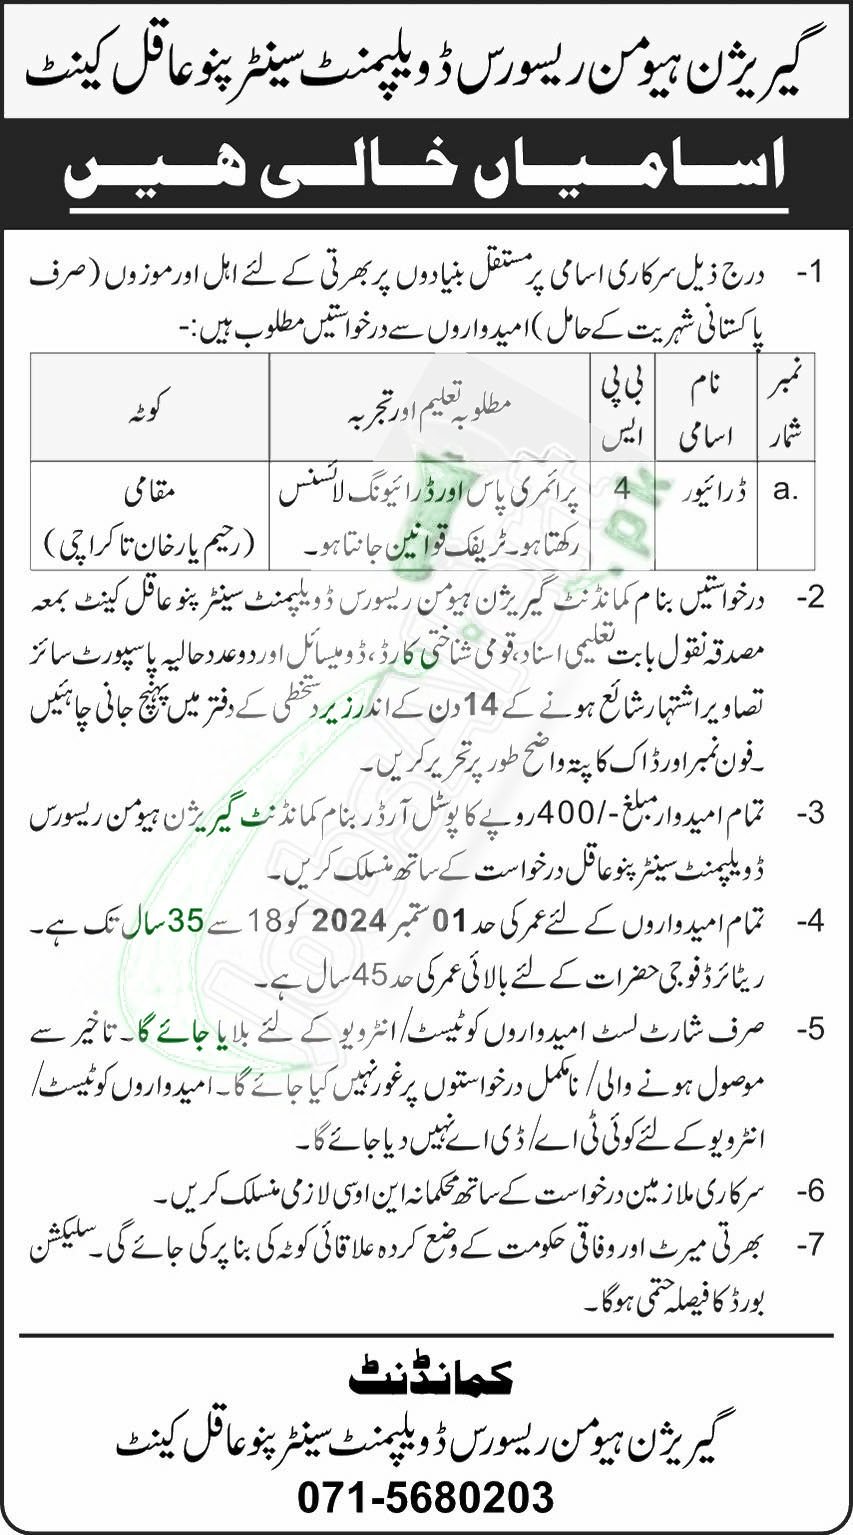 گیریژن ہیومن ریسورس ڈویلپمنٹ سینٹر پنوعاقل کینٹ
اسامیاں خالی ھیں
1- درج ذیل سرکاری اسامی پر مستقل بنیادوں پر بھرتی کے لئے اہل اور موزوں (صرف
پاکستانی شہریت کے حامل) امیدواروں سے درخواستیں مطلوب ہیں:-
نمبر شمار | نام اسامی | بی پی ایس | مطلوبہ تعلیم اور تجربہ | کوٹہ
a. | ڈرائیور | 4 | پرائمری پاس اور ڈرائیونگ لائسنس رکھتا ہو۔ ٹریفک قوانین جانتا ہو۔ | مقامی (رحیم یار خان تا کراچی)
2- درخواستیں بنام کمانڈنٹ گیریژن ہیومن ریسورس ڈویلپمنٹ سینٹر پنوعاقل کینٹ بمعہ
مصدقہ نقول بابت تعلیمی اسناد، قومی شناختی کارڈ، ڈومیسائل اور دو عدد حالیہ پاسپورٹ سائز
تصاویر اشتہار شائع ہونے کے 14 دن کے اندر زیر دستخطی کے دفتر میں پہنچ جانی چاہئیں
۔ فون نمبر اور ڈاک کا پتہ واضح طور پر تحریر کریں۔
3- تمام امیدوار مبلغ -/400 روپے کا پوسٹل آرڈر بنام کمانڈنٹ گیریژن ہیومن ریسورس
ڈویلپمنٹ سینٹر پنوعاقل درخواست کے ساتھ منسلک کریں۔
4- تمام امیدواروں کے لئے عمر کی حد 01 ستمبر 2024 کو 18 سے 35 سال تک ہے۔
ریٹائرڈ فوجی حضرات کے لئے بالائی عمر کی حد 45 سال ہے۔
5- صرف شارٹ لسٹ امیدواروں کو ٹیسٹ/ انٹرویو کے لئے بلایا جائے گا۔ تاخیر سے
موصول ہونے والی/ نامکمل درخواستوں پر غور نہیں کیا جائے گا۔ امیدواروں کو ٹیسٹ/
انٹرویو کے لئے کوئی ٹی اے/ ڈی اے نہیں دیا جائے گا۔
6- سرکاری ملازمین درخواست کے ساتھ محکمانہ این او سی لازمی منسلک کریں۔
7- بھرتی میرٹ اور وفاقی حکومت کے وضع کردہ علاقائی کوٹہ کی بنا پر کی جائے گی۔ سلیکشن
بورڈ کا فیصلہ حتمی ہوگا۔
کمانڈنٹ
گیریژن ہیومن ریسورس ڈویلپمنٹ سینٹر پنوعاقل کینٹ
071-5680203